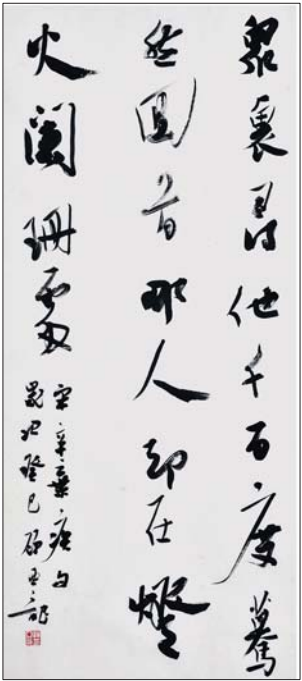 眾裏尋他千百度驀
然回首那人却在燈
火闌珊處
宋辛棄疾句
歲次癸巳